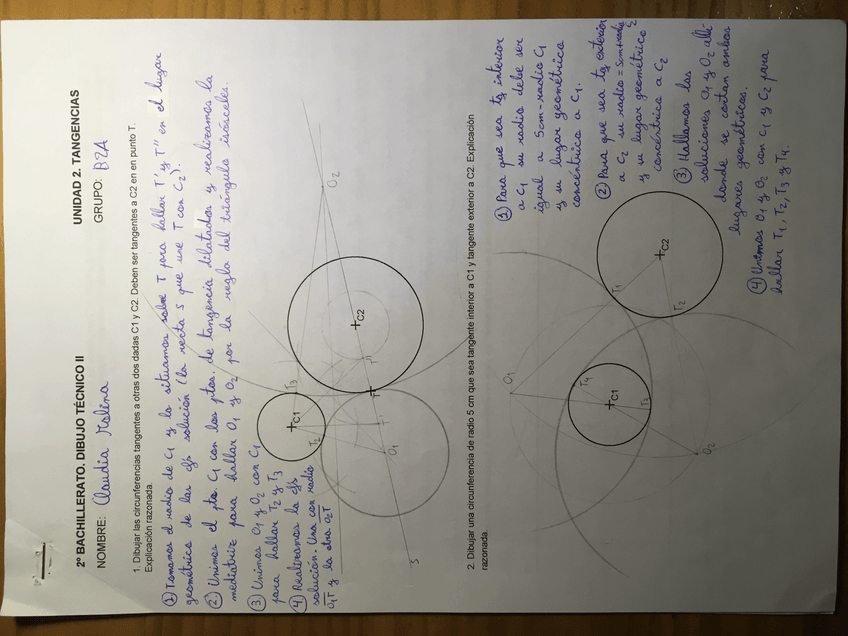 2º BACHILLERATO. DIBUJO TÉCNICO II
UNIDAD 2. TANGENCIAS
NOMBRE: Claudia Molina
GRUPO: B2A
1. Dibujar las circunferencias tangentes a otras dos dadas C1 y C2. Deben ser tangentes a C2 en en punto T.
Explicación razonada.
① Tomamos el radio de C1 y lo situamos sobre T para hallar T' y T'' en el lugar
geométrico de las cfs solución (la recta s que une T con C2).
② Unimos el pto. C1 con los ptos. de tangencia dilatados y realizamos la
mediatriz para hallar O1 y O2 por la regla del triángulo isósceles.
③ Unimos O1 y O2 con C1
para hallar T2 y T3
④ Realizamos la cfs
solución. Una con radio
O1T y la otra O2T
C1
C2
T
T'
T''
T2
T3
O1
O2
s
2. Dibujar una circunferencia de radio 5 cm que sea tangente interior a C1 y tangente exterior a C2. Explicación
razonada.
① Para que sea tg interior
a C1 su radio debe ser
igual a 5cm-radio C1
y su lugar geométrico
concéntrico a C1.
② Para que sea tg exterior
a C2 su radio = 5cm+radio
y su lugar geométrico
concéntrico a C2
③ Hallamos las
soluciones O1 y O2 allí
donde se cortan ambos
lugares geométricos.
④ Unimos O1 y O2 con C1 y C2 para
hallar T1, T2, T3 y T4.
C1
C2
O1
O2
T1
T2
T3
T4